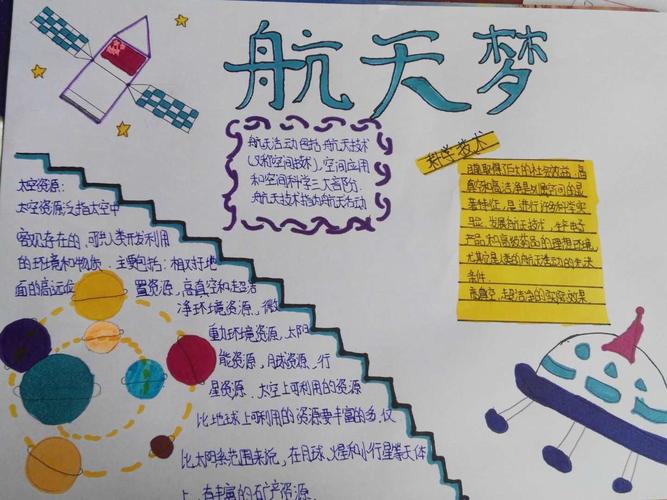 航天梦
航天活动包括航天技术
(又称空间技术),空间应用
和空间科学三大部分.
航天技术指为航天活动
科学技术
高真空和高洁净是外层空间的显
著特征,是进行许多科学实
验、发展航天技术,
产品和高级药品的理想环境,
条件.
高真空,超洁净的实际效果.
太空资源:
太空资源泛指太空中
客观存在的,可供人类开发利用
的环境和物质.主要包括:相对于地
面的高远位置资源,高真空和超洁
净环境资源,微
重力环境资源,太阳
能资源,月球资源,行
星资源,太空上可利用的资源
比地球上可利用的资源要丰富的多,仅
从太阳系范围来说,在月球、火星和小行星等天体
上,有丰富的矿产资源.